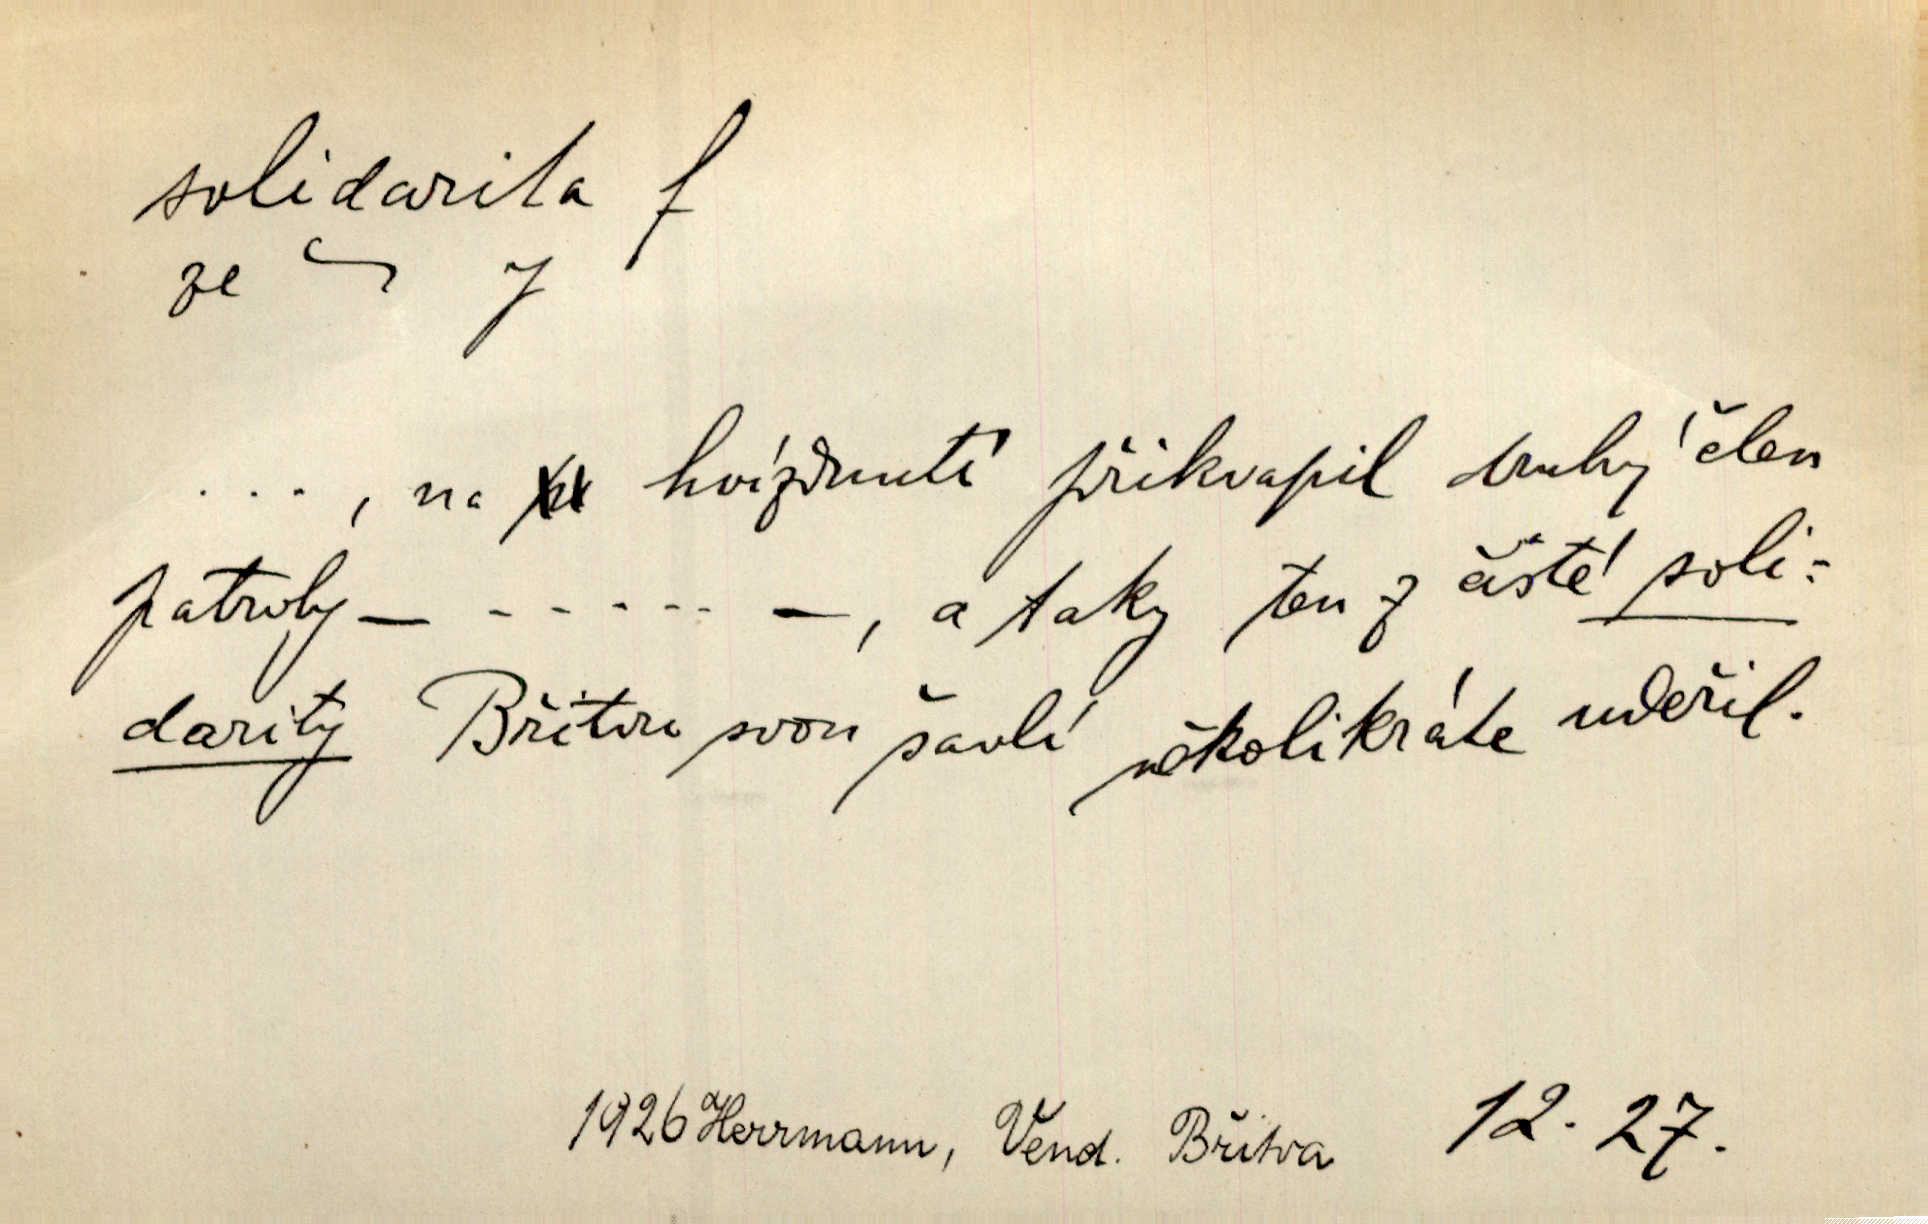 solidarita f
ze ~ y
..., na hvízdnutí přikvapil druhý člen
patroly — - - - - - —, a taky ten z čisté soli=
darity Břitvu svou šavlí několikráte udeřil.
1926 Herrmann, Vend. Břitva 12. 27.